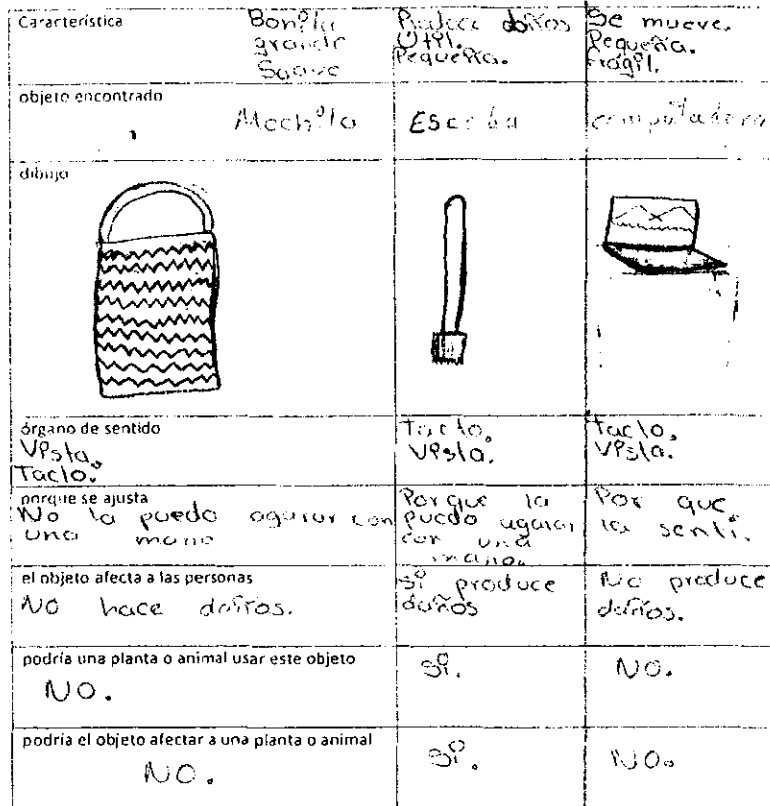 Característica
Bonita
grande
Suave
Produce daños
Útil.
Pequeña.
Se mueve.
Pequeña.
Frágil.
objeto encontrado
Mochila
Escoba
computadora
dibujo
órgano de sentido
Vista.
Tacto.
Tacto.
Vista.
Tacto.
Vista.
porque se ajusta
No la puedo agarar con
una mano
Porque la
puedo agarar
con una
mano.
Por que
la sentí.
el objeto afecta a las personas
No hace daños.
Sí produce
daños
No produce
daños.
podría una planta o animal usar este objeto
NO.
Sí.
NO.
podría el objeto afectar a una planta o animal
NO.
Sí.
NO.